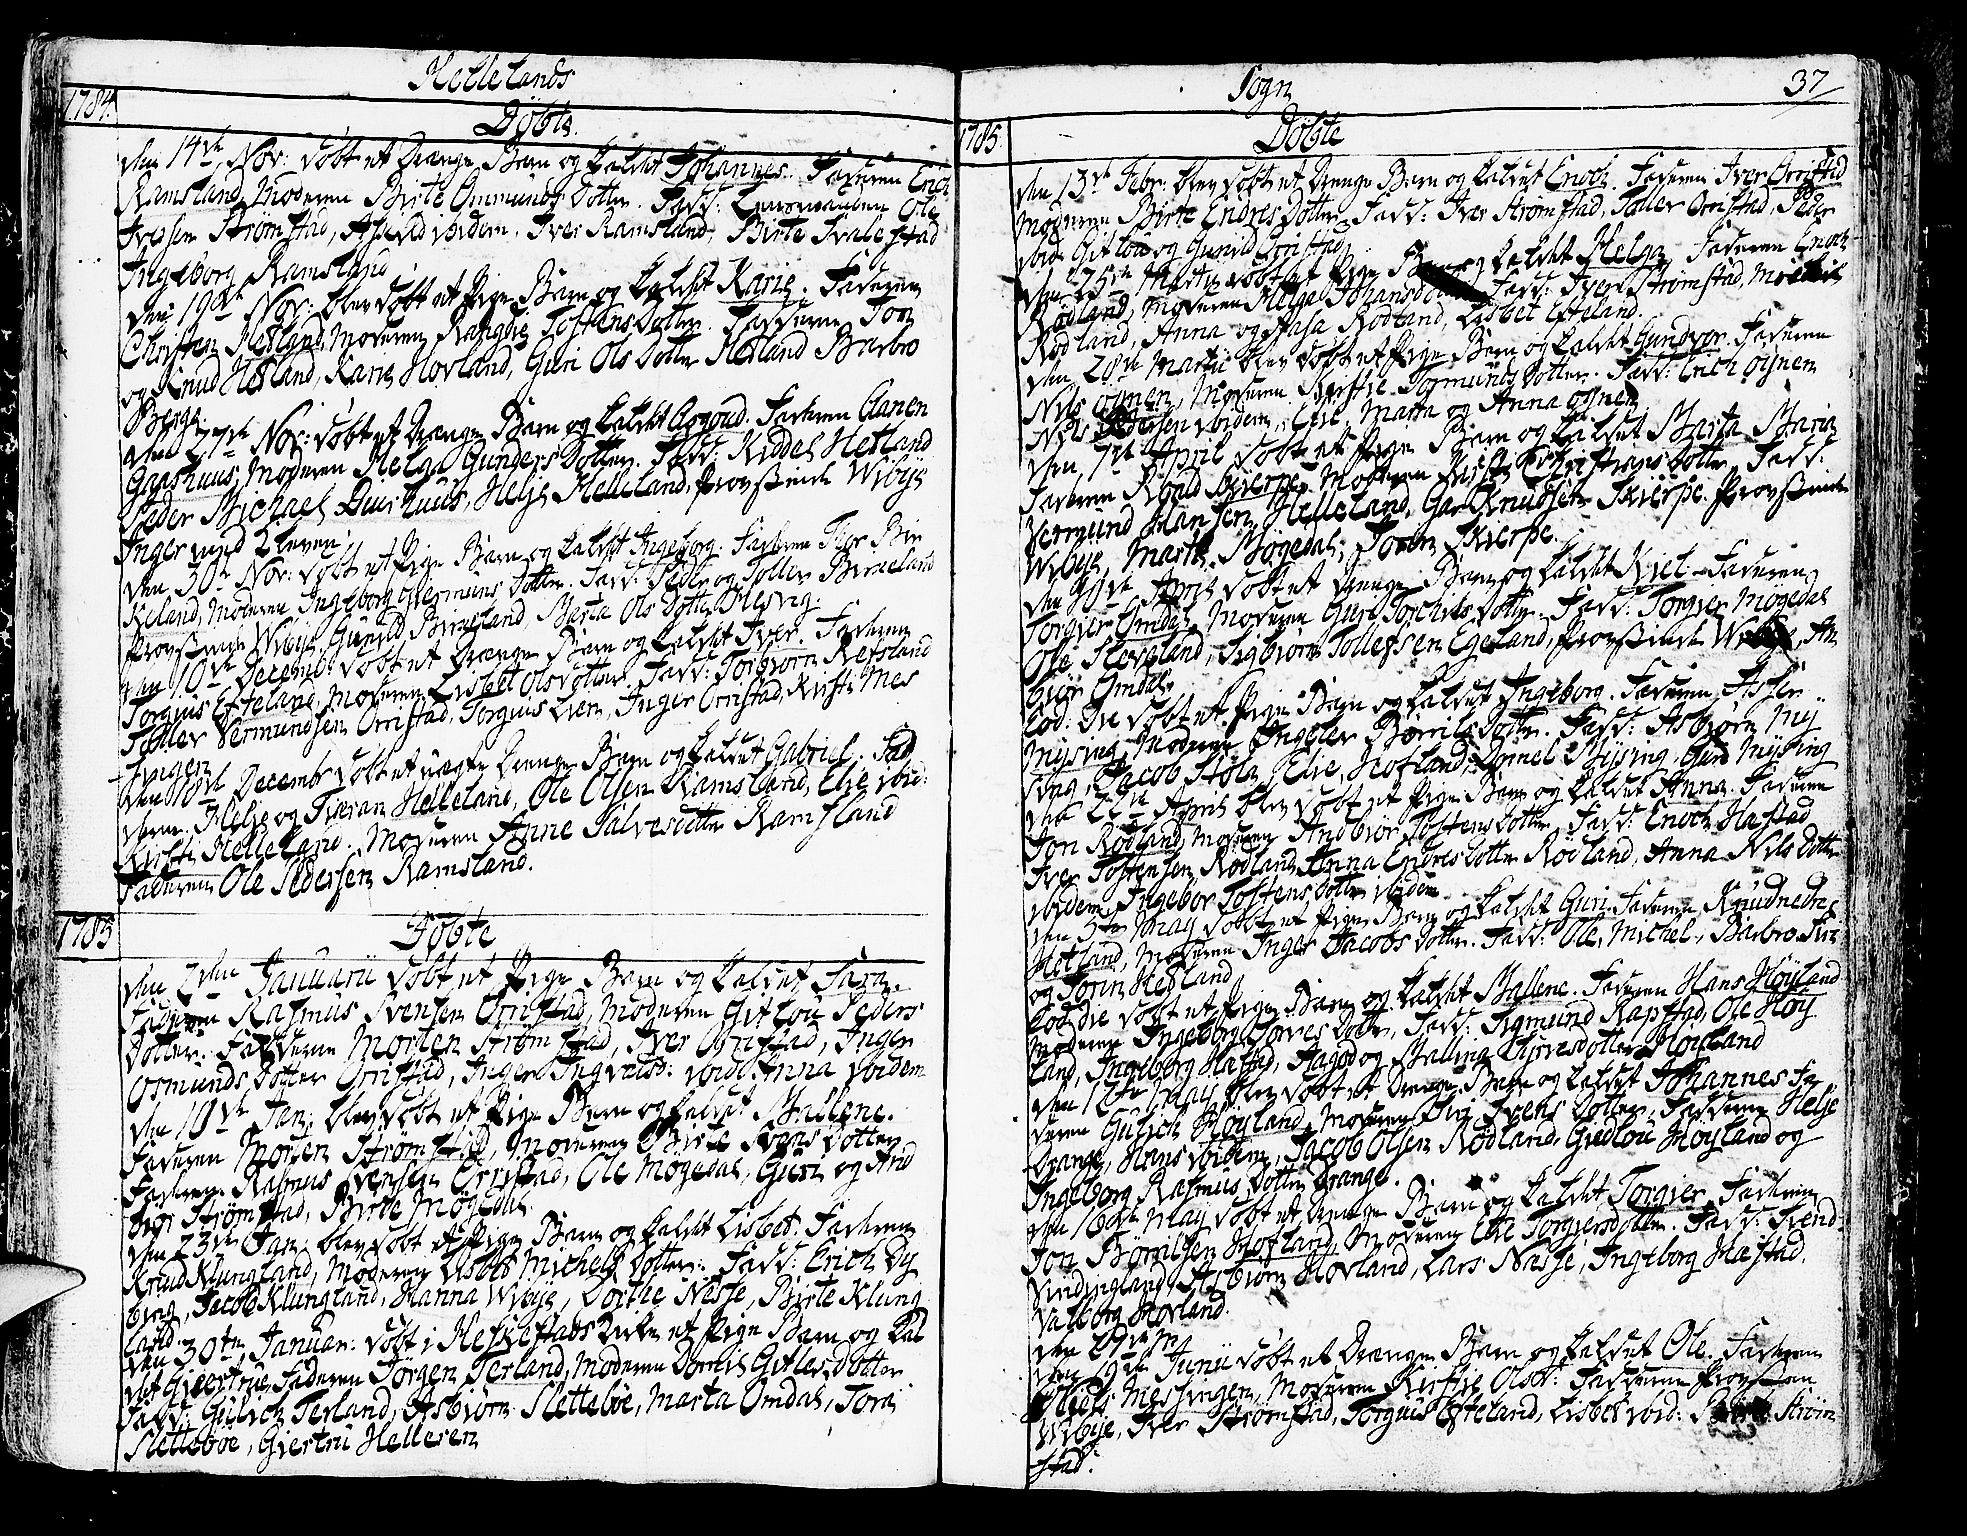 Hellelands
1784.
Döbte.
den 14de Nov: döbt et Drenge Barn og kaldet Johannes. Faderen Erich
Ramsland Moderen Birte Ommunds Dotter. Fadd: Lensmanden Ole
Ivessen Strömstad, Asevld ibidem, Iver Ramsland, Birte Svalestad
Ingeborg Ramsland
den 19de Nov: blev döbt et Pige Barn og kaldet Karie. Faderen
Christen Hetland, Moderen Rangdie Tostensdotter. Fadderne Jon
og Knud Hetland, Karie Hovland, Guri Ols Dotter Hetland Barbro
Berge
den 27de Nov: döbt et Drenge Barn og kaldet Asgoud. Faderen Aanen
Gaashuus, Moderen Helga Gunders Dotter. Fadd: Kiddel Hetland
Peder Michael Guushuus, Helje Helleland, Provstinde Wibye
Inger
den 30te Nov: döbt et Pige Barn og kaldet Ingeborg. Faderen Thor Bir
keland, Moderen Ingeborg Dotter. Fadd: Peder og Toller Birkeland
Provstinde Wibye, Gunild Birkeland, Marta Ols Dotter
den 10de Decemb: döbt et Drenge Barn og kaldet Iver. Faderen
Torgius Efteland, Moderen Lisbet Olsdotter. Fadd: Torbjörn Refsland
Toller Vermundsen Orristad, Torgius Lien, Inger Orristad, Kirsti Mes
singen
den 18de Decembr döbt et uægte Drenge Barn og kaldet Gabriel. Fad
derne. Helje og Tieran Helleland, Ole Olsen Ramsland, Elie ibid:
Kirsti Helleland. Moderen Anne Salvesdotter Ramsland
Faderen Ole Pedersen Ramsland.
1785
Döbte
den 2den Januarii döbt et Pige Barn og kaldet Sara.
Faderen Rasmus Svensen Orristad, Moderen Gitlou Peders
Dotter. Fadderne Morten Strömstad, Iver Orristad, Inger
Osmunds Dotter Orristad, Inger Ingvalsd: ibid: Anna ibidem
den 10de Jan: blev döbt et Pige Barn og kaldet Mallene.
Faderen Morten Strömstad, Moderen Birte Svens Dotter
Fadderne Rasmus Svensen Orristad, Ole Mögedal, Gjuri og And
biör Strömstad, Birte Mögedal
den 23de Jan: blev döbt et Pige Barn og kaldet Lisbet: Faderen
Knud Klungland, Moderen Lisbet Michels Dotter: Fadd: Erich Ey
bing, Jacob Klungland, Hanna Wibye, Dorthe Nesse, Birte Klung
land.
den 30te Januar: döbt i Heskestads kirke et Pige Barn og kal
det Gjertrue, Faderen Jörgen Terland, Moderen Gitlesdotter
Fadd: Gulich Terland, Asbiörn Slettebøe, Marta Omdal, Tora
Slettebøe, Giertru Helleren
Sogn
37
1785
Döbte
den 13de Febr: blev döbt et Drenge Barn og kaldet Enoch. Faderen Iver Orristad
Moderen Birte Endres Dotter. Fadd: Iver Strömstad, Toller Orristad, Peder
ibid: Gitlou og Gunild Orristad,
den 25de Martii döbt et Pige Barn og kaldet Helga. Faderen Enoch
Rödland, Moderen Helga Johansdotter Fadd: Iver Strömstad,
Rödland, Anna og Aasa Rödland, Lisbet Efteland.
den 28de Martii blev döbt et Pige Barn og kaldet Gundvor. Faderen
Nils Ognen, Moderen Kirstie Tormunds Dotter. Fadd: Erich Ognen
Nils Pedersen ibidem, Elie, Marta og Anna Ognen
den 7de April döbt et Pige Barn og kaldet Marta Maria
Faderen Roald Skierpe, Moderen Kirste Christians dotter. Fadd:
Vermund Hansen Helleland, Knudsen Skierpe. Provstinde
Wibye, Marte Mögedal, Toren Skierpe.
den 10de April döbt et Drenge Barn og kaldet Kiel. Faderen
Torgier Omdal, Moderen Guri Torkils dotter. Fadd: Torgier Mögedal
Ole Sleveland, Sigbiörn Tollefsen Egeland, Provstinde Wibye, An
biör Omdal.
Eod: die döbt et Pige Barn og kaldet Ingeborg. Faderen Assen
Mysing, Moderen Ingeler Börrils dotter. Fadd: Asbiörn My
sing, Jacob Stöle, Elie Hofland, Mysing, Guri Mysing
den 22de April blev döbt et Pige Barn og kaldet Anna. Faderen
Jon Rödland, Moderen Andbiör Tostens dotter. Fadd: Enoch Hæstad
Iver Tostensen Rödland, Anna Endres dotter Rödland, Anna Nils dotter
ibidem, Ingebor Tostens dotter ibidem
den 5te May döbt et Pige Barn og kaldet Guri. Faderen Knud nedre
Hetland, Moderen Inger Jacobs Dotter. Fadd: Ole, Michel, Barbro Siri
og Torin Hetland
Eod die döbt et Pige Barn og kaldet Mallene. Faderen Hans Höyland
Moderen Ingeborg Torres dotter, Fadd: Sigmund Rapstad, Ole Höy
land, Ingeborg Hæstad, Aagod og Malling Torresdotter Höyland
den 12te May blev döbt et Drenge Barn og kaldet Johannes Fa
deren Gulich Höyland, Moderen Siri Ivers Dotter, Fadderne Helje
Drange, Hans ibidem, Jacob Olsen Rödland, Giedlou Höyland og
Ingeborg Rasmus Dotter Drange.
den 16de May döbt et Drenge Barn og kaldet Torgier. Faderen
Jon Börrilsen Hofland, Moderen Elie Torgiersdotter. Fadd: Svend
Vindingland, Asbiörn Hovland, Lars Nesse, Ingeborg Hæstad,
Valborg Hovland.
den 29de M
den 19de Junii döbt et Drenge Barn og kaldet Ole. Faderen
Messingen, Moderen Kirstie Olsd: Fadderne Provsten
Wibye, Iver Strömstad, Torgius Efteland, Lisbet ibid: Ström
stad.